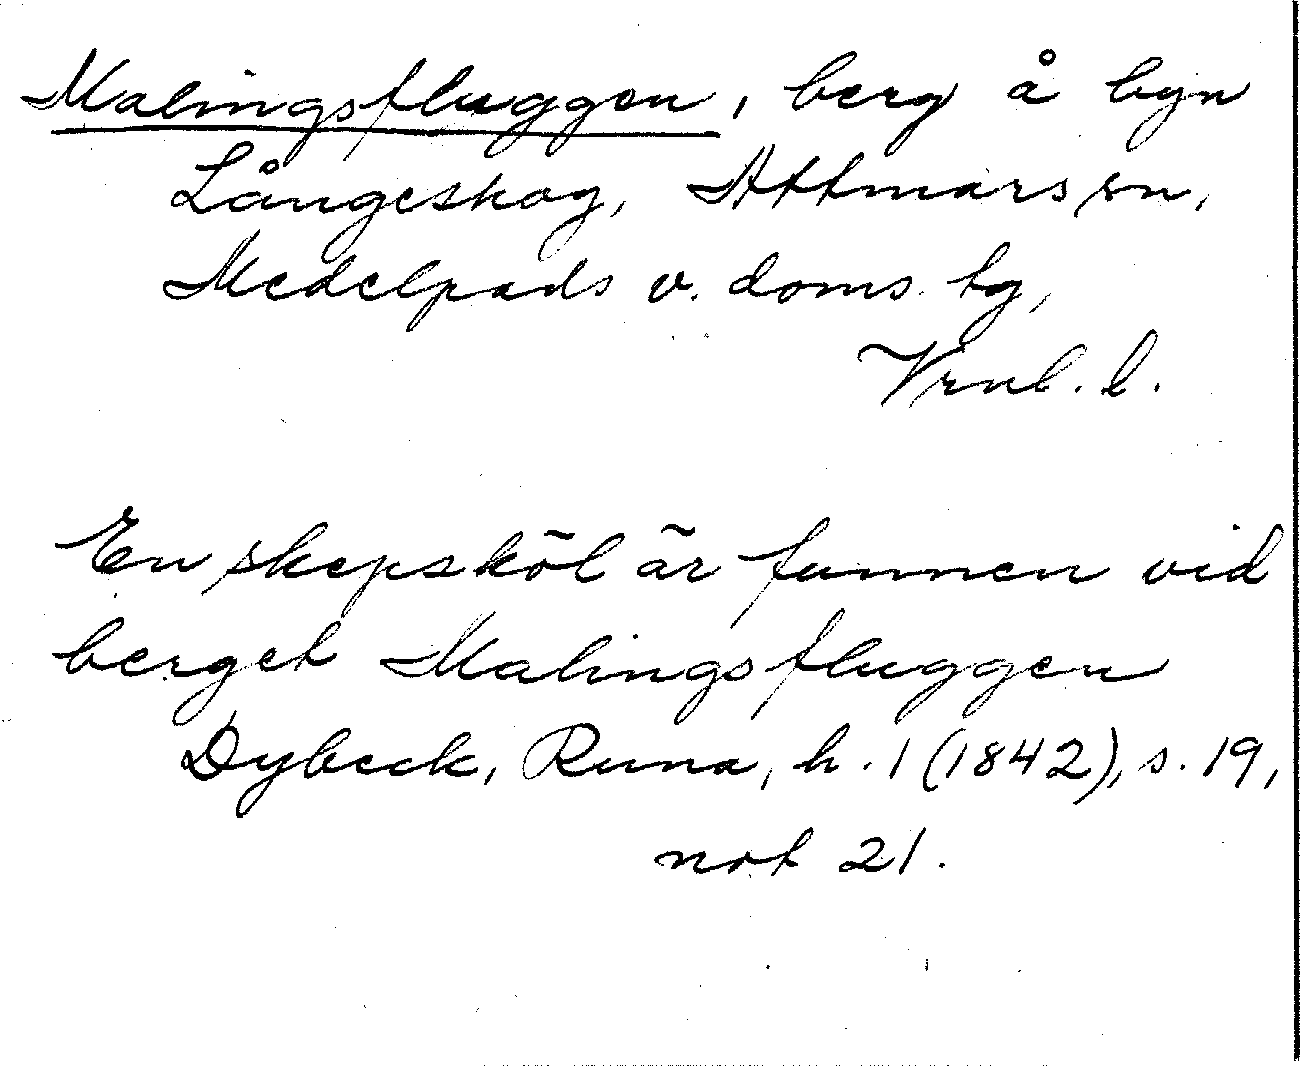 Malingsfluggen, berg å byn
Långeskog, Attmars sn,
Medelpads v. doms. tg,
Vrnl. l.
En skepsköl är funnen vid
berget Malingsfluggen
Dybeck, Runa, h. 1 (1842), s. 19,
not 21.